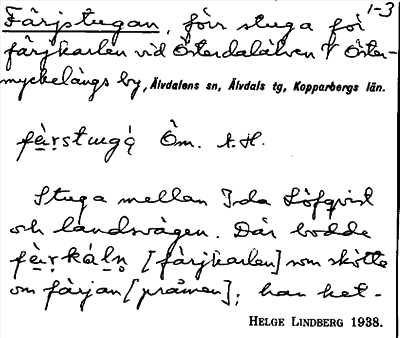 1-3
Färjstugan, förr stuga för
färjkarlen vid Österdalälven i Öster-
myckelängs by, Älvdalens sn, Älvdals tg, Kopparbergs län.
Öm. t. H.
Stuga mellan Ida Löfqvist
och landsvägen. Där bodde
[färjkarlen] som skötte
om färjan [pråmen]; han het-
HELGE LINDBERG 1938.